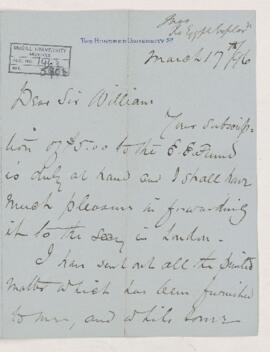 McGILL UNIVERSITY
ARCHIVES
ACC. NO.
REF.
TWO HUNDRED UNIVERSITY ST.
March 17th
Dear Sir William
Your subscrip-
tion of $5.00 to the E. E. Fund
is duly at hand and I shall have
much pleasure in forwarding
it to the Secy in London.
I have sent out all the printed
matter which has been furnished
to me, and while some